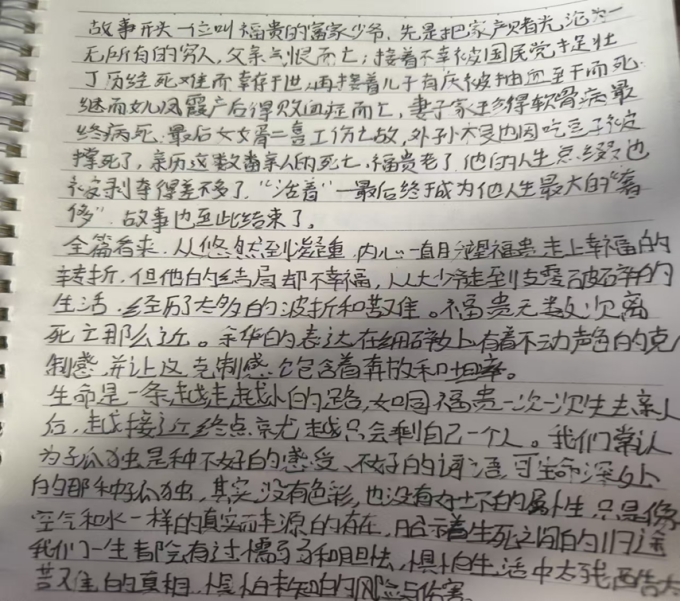 故事开头一位叫福贵的富家少爷，先是把家产赌光沦为一
无所有的穷人，父亲气恨而亡；接着不幸被国民党捉壮
丁历经死难而幸存于世，再接着儿子有庆被抽血至干而死
继而女儿凤霞产后得败血症而亡，妻子家珍得软骨病最
终病死，最后女婿二喜工伤亡故，外孙大多也因吃豆子被
撑死了，亲历这数番亲人的死亡，福贵老了他的人生点缀也
被剥夺得差不多了，“活着”一最后终于成为他人生最大的“奢
侈”，故事也至此结束了。
全篇看来，从悠然到凝重，内心一直月望福贵走上幸福的
转折，但他的结局却不幸福，从大少走到支零破碎的
生活，经历了太多的波折和苦难。福贵无数次离
死亡那么近。余华的表达在细碎处有着不动声色的克
制感，并让这克制感包含着奔放和坦率。
生命是一条越走越小的路，如同福贵一次一次失去亲人
后，越接近终点就越只会剩自己一个人。我们常认
为孤独是种不好的感受、不好的词语，可生命深处
的那种孤独，其实没有色彩，也没有的属性，只是像
空气和水一样的真实而本源的存在，昭示着生死之间的
我们一生都会有过懦弱和胆怯，惧怕生活中太残酷
苦难的真相，惧怕未知的风险与伤害。